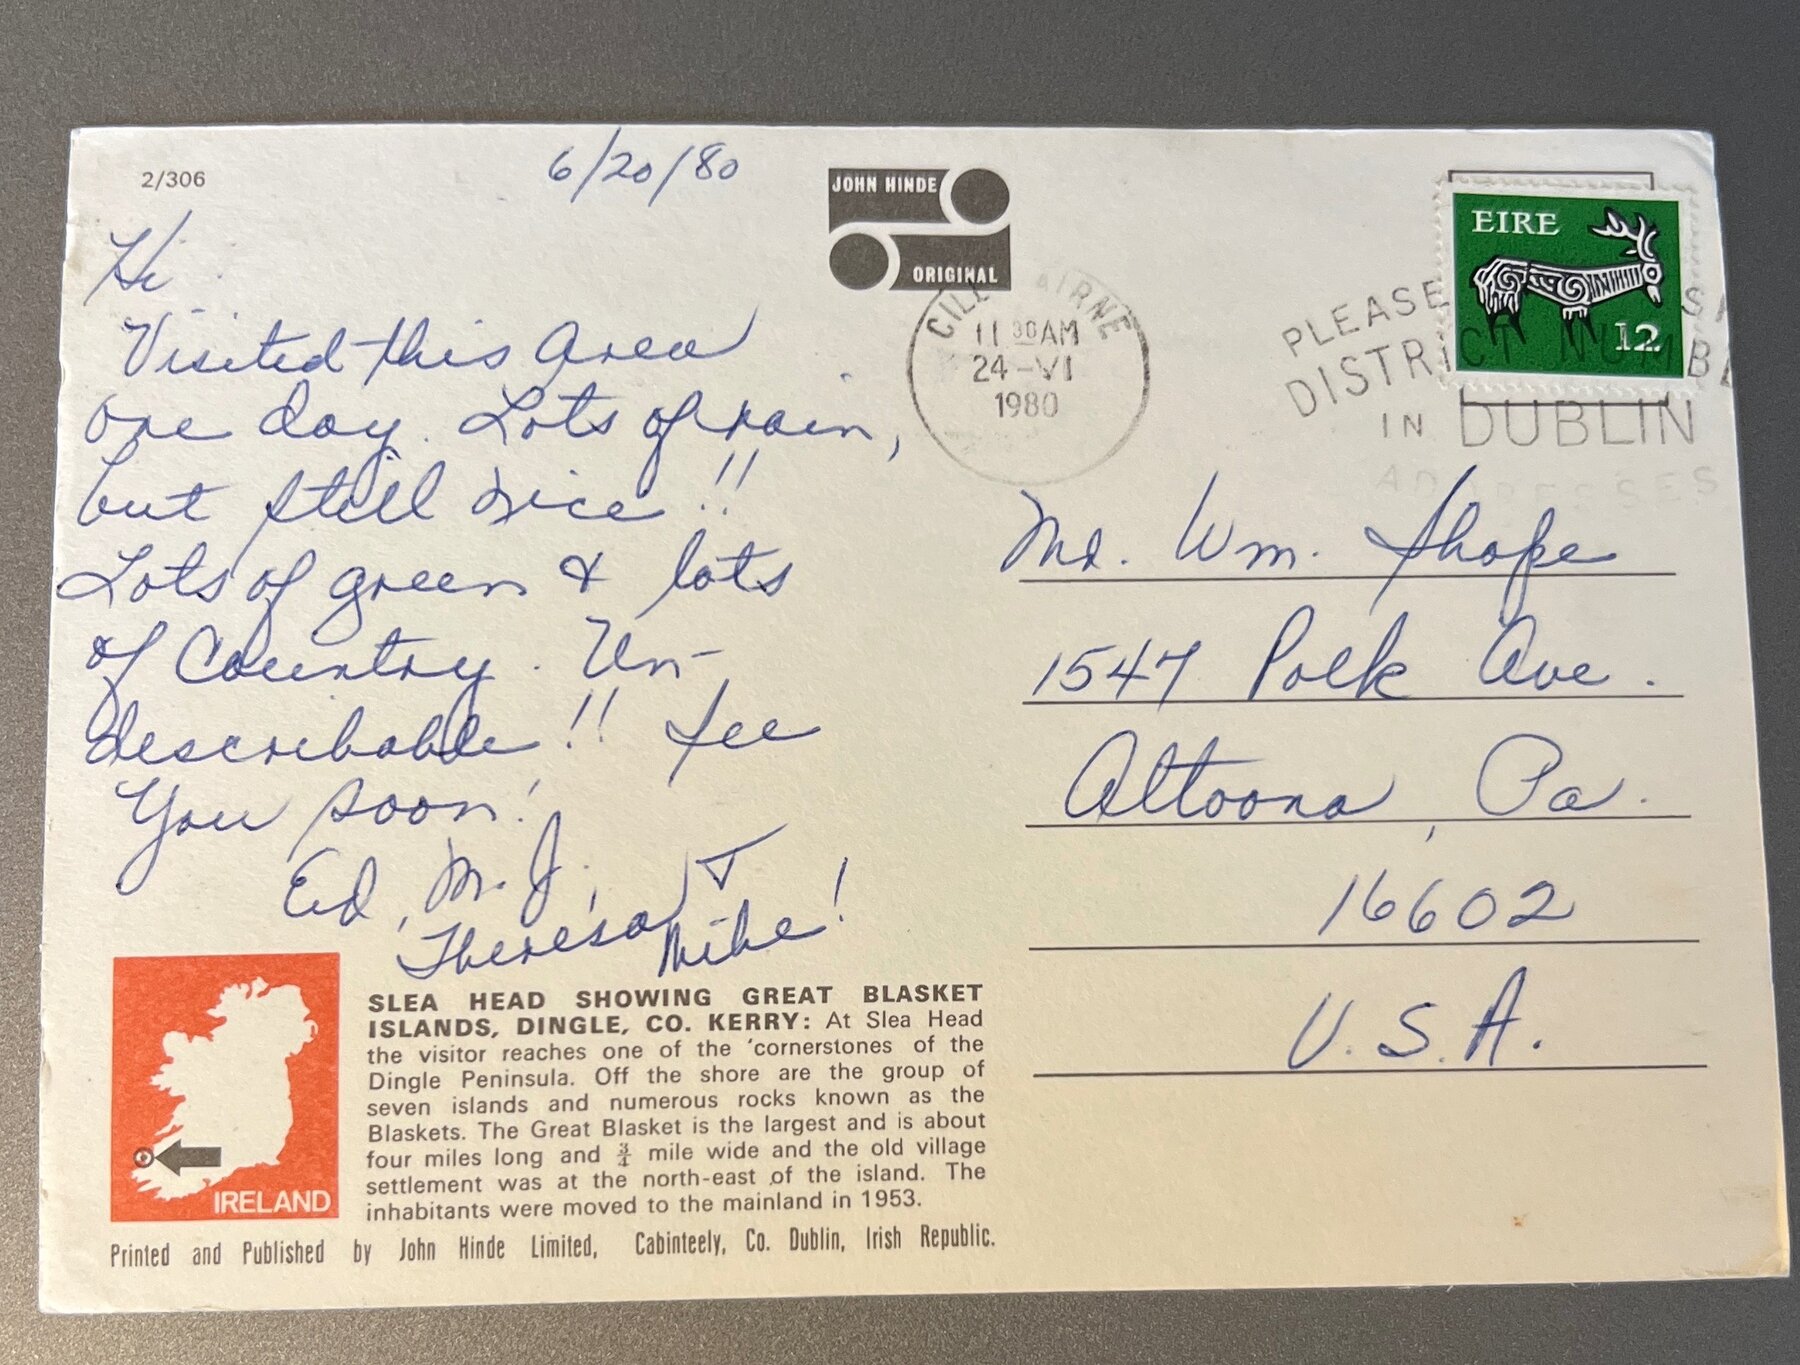 2/306
6/20/80
JOHN HINDE
ORIGINAL
EIRE
12
11 30AM
24-VI
1980
PLEASE
DISTRICT NUMB
IN DUBLIN
ADDRESSES
Hi
Visited this area
one day. Lots of rain,
but still nice!!
Lots of green & lots
of Country. Un-
describable!! See
You soon!
Ed, M.J.,
Theresa &
Mike!
Mr. Wm. Shope
1547 Polk Ave.
Altoona, Pa.
16602
U.S.A.
IRELAND
SLEA HEAD SHOWING GREAT BLASKET
ISLANDS, DINGLE, CO. KERRY: At Slea Head
the visitor reaches one of the 'cornerstones of the
Dingle Peninsula. Off the shore are the group of
seven islands and numerous rocks known as the
Blaskets. The Great Blasket is the largest and is about
four miles long and ¾ mile wide and the old village
settlement was at the north-east of the island. The
inhabitants were moved to the mainland in 1953.
Printed and Published by John Hinde Limited, Cabinteely, Co. Dublin, Irish Republic.